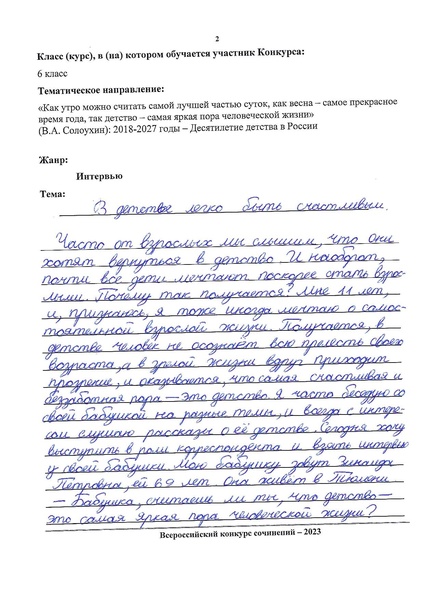 2
Класс (курс), в (на) котором обучается участник Конкурса:
6 класс
Тематическое направление:
«Как утро можно считать самой лучшей частью суток, как весна – самое прекрасное
время года, так детство – самая яркая пора человеческой жизни»
(В.А. Солоухин): 2018-2027 годы – Десятилетие детства в России
Жанр:
Интервью
Тема:
В детстве легко быть счастливым.
Часто от взрослых мы слышим, что они
хотят вернуться в детство. И наоборот,
почти все дети мечтают поскорее стать взрос-
лыми. Почему так получается? Мне 11 лет,
и, признаюсь, я тоже иногда мечтаю о самос-
тоятельной взрослой жизни. Получается, в
детстве человек не осознаёт всю прелесть своего
возраста, а в зрелой жизни вдруг приходит
прозрение, и оказывается, что самая счастливая и
беззаботная пора – это детство. Я часто беседую со
своей бабушкой на разные темы, и всегда с интере-
сом слушаю рассказы о её детстве. Сегодня хочу
выступить в роли корреспондента и взять интервью
у своей бабушки. Мою бабушку зовут Зинаида
Петровна, ей 69 лет. Она живёт в Тюмени.
– Бабушка, считаешь ли ты, что детство –
это самая яркая пора человеческой жизни?
Всероссийский конкурс сочинений – 2023